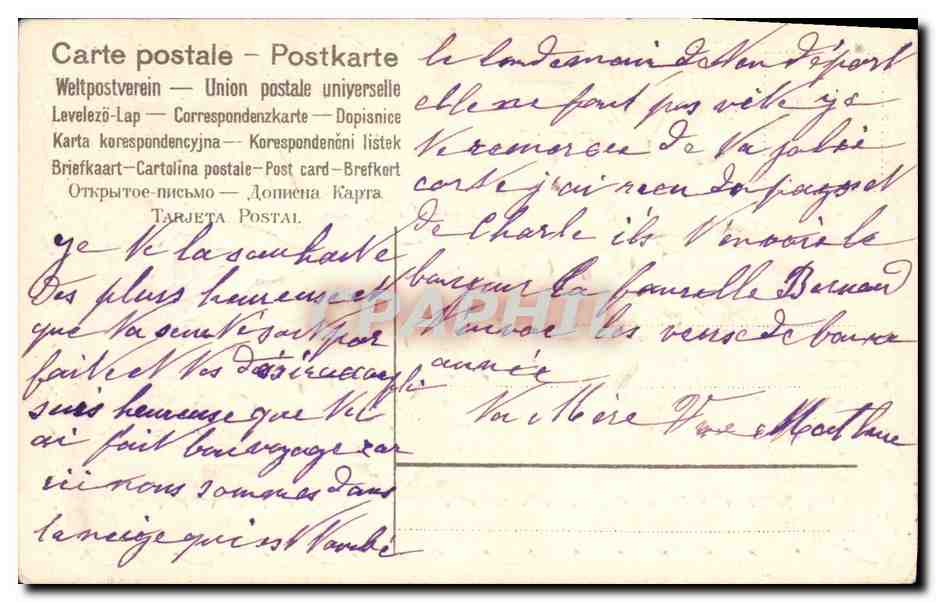 Carte postale – Postkarte
Weltpostverein — Union postale universelle
Levelező-Lap — Correspondenzkarte — Dopisnice
Karta korespondencyjna — Korespondenční listek
Briefkaart — Cartolina postale — Post card — Brefkort
Открытое-письмо — Дописна Карта
Tarjeta Postal
je te la souhaite
des plus heureuse et
que ta
faite et tes désire accompli
suis heureuse que tu
ai fait bon voyage car
ici nous sommes dans
la neige qui est tombé
le lendemain de ton départ
elle ne font pas vite je
te remercie de ta jolie
carte j ai recu
de Charle ils t envoie le
bonjour la
les veux de bonne
année
Ta Mère Vve
CPAPHIL